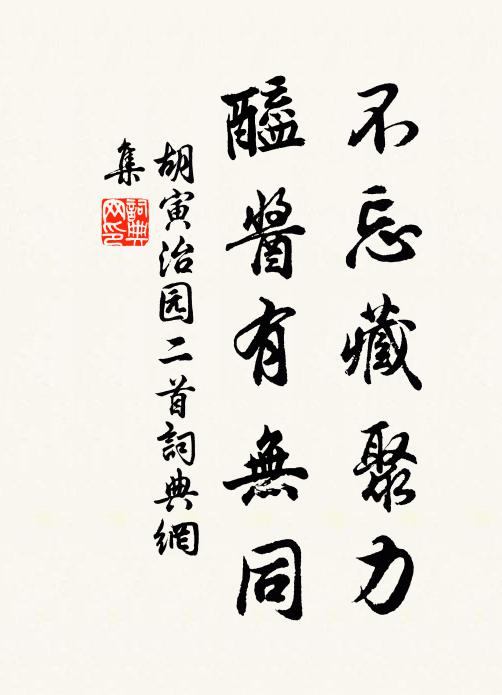 不忘藏聚力
醯醬有無同
胡寅治园二首詞典網
集
詞典
网印